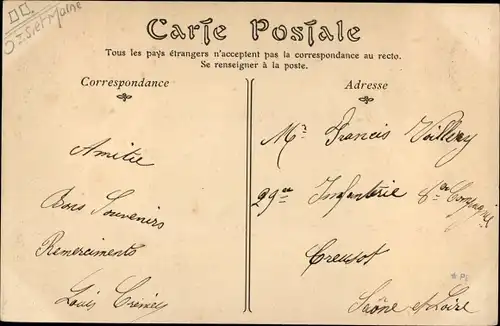 Carte Postale
Tous les pays étrangers n'acceptent pas la correspondance au recto.
Se renseigner à la poste.
Correspondance
Adresse
Amitié
Bons Souvenirs
Remerciments
Louis
Mr Francis
29me Infanterie 8me Compagnie
Creusot
Saône et Loire